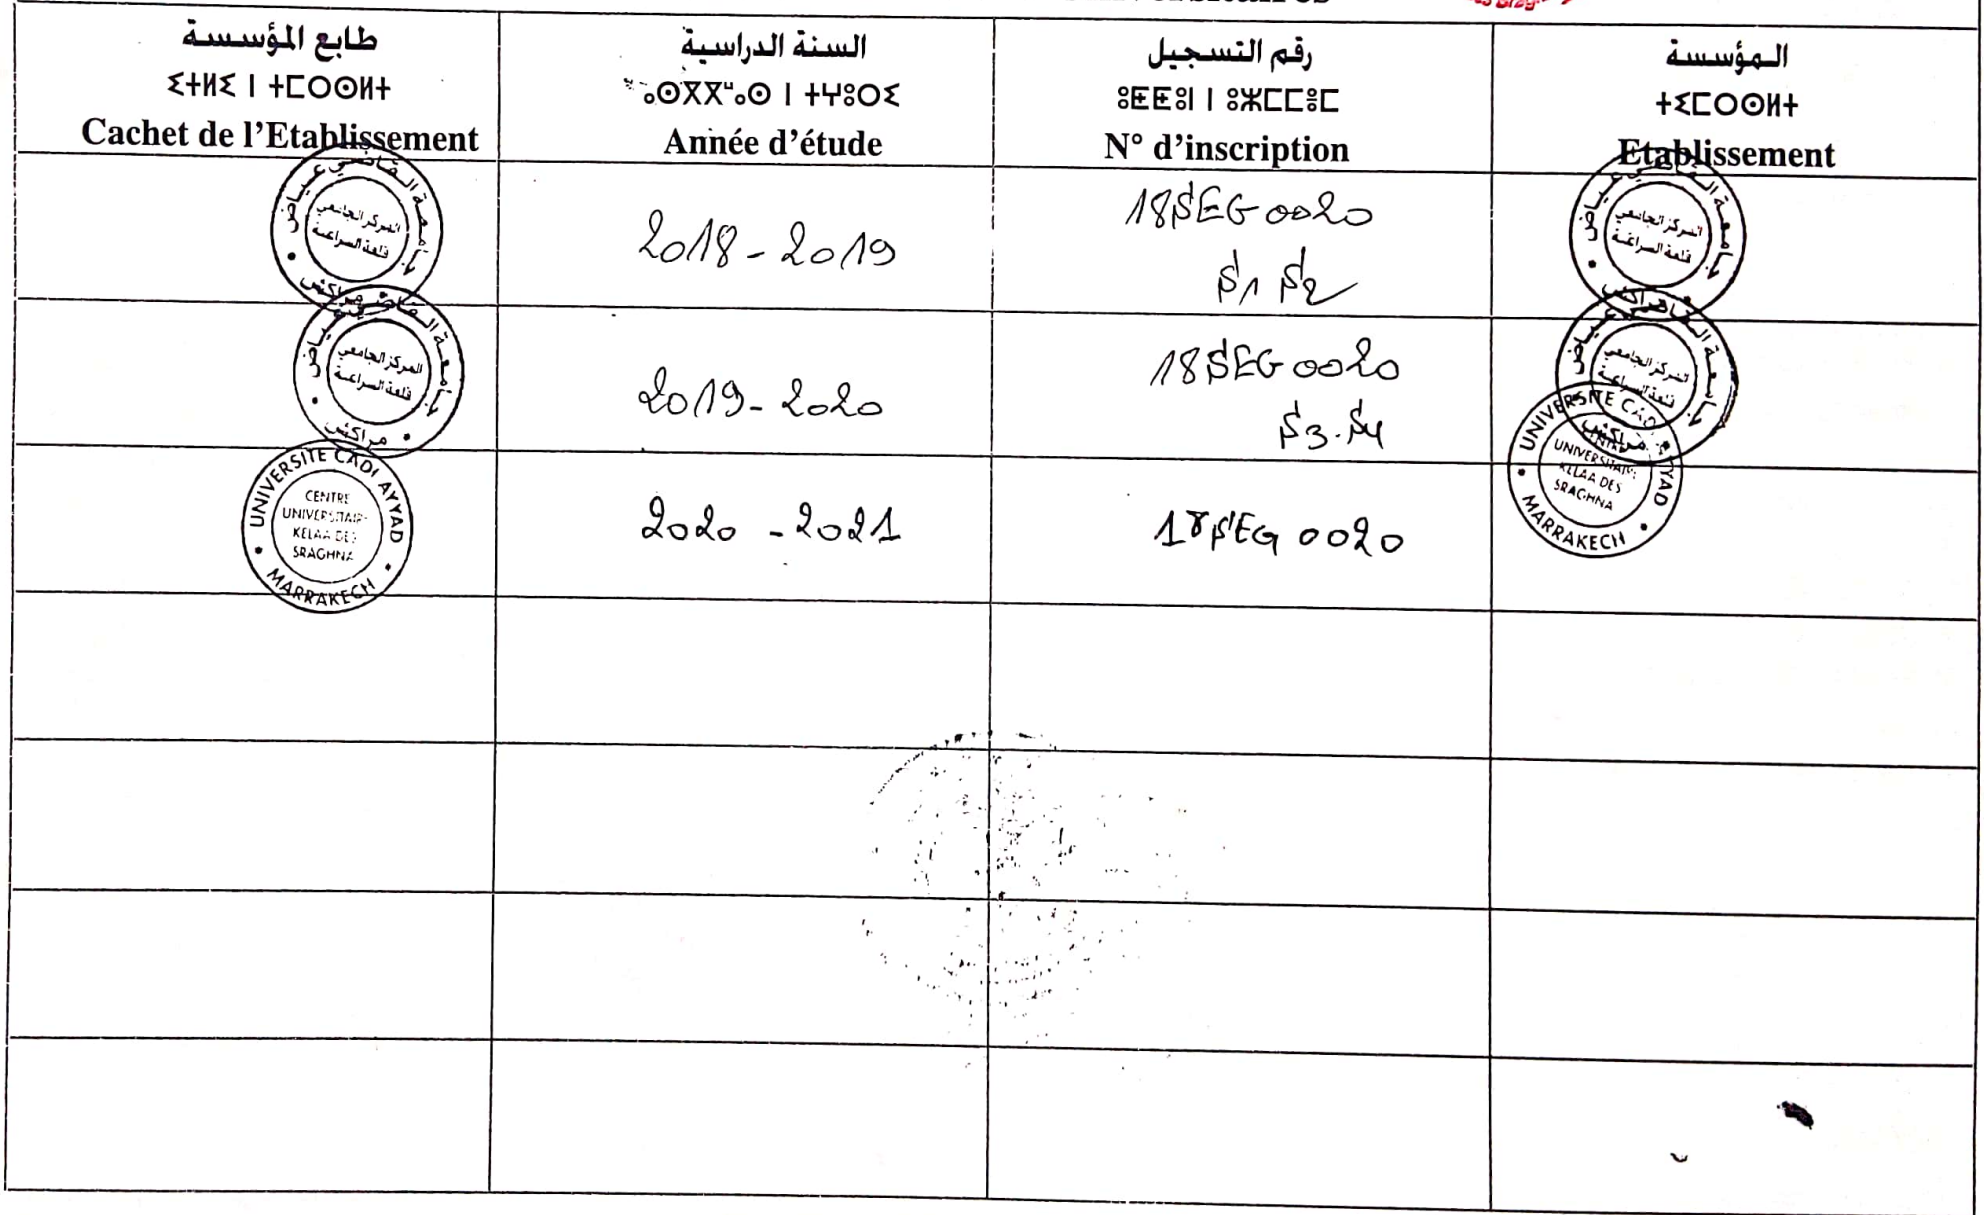 طابع المؤسسة
ⵉⵜⵍⵉ ⵏ ⵜⵎⵔⵙⵍⵜ
Cachet de l'Etablissement
السنة الدراسية
ⴰⵙⴳⴳⵯⴰⵙ ⵏ ⵜⵖⵓⵔⵉ
Année d'étude
رقم التسجيل
ⵓⵟⵟⵓⵏ ⵏ ⵓⵣⵎⵎⵓⵎ
N° d'inscription
المؤسسة
ⵜⵉⵎⵔⵙⵍⵜ
Etablissement
جامعة القاضي عياض
المركز الجامعي
قلعة السراغنة
مراكش
2018-2019
18SEG0020
S1 S2
جامعة القاضي عياض
المركز الجامعي
قلعة السراغنة
مراكش
جامعة القاضي عياض
المركز الجامعي
قلعة السراغنة
مراكش
2019-2020
18SEG0020
S3.S4
جامعة القاضي عياض
المركز الجامعي
قلعة السراغنة
مراكش
UNIVERSITE CADI AYYAD
CENTRE
UNIVERSITAIRE
KELAA DES
SRAGHNA
MARRAKECH
2020 - 2021
18SEG 0020
UNIVERSITE CADI AYYAD
UNIVERSITAIRE
KELAA DES
SRAGHNA
MARRAKECH